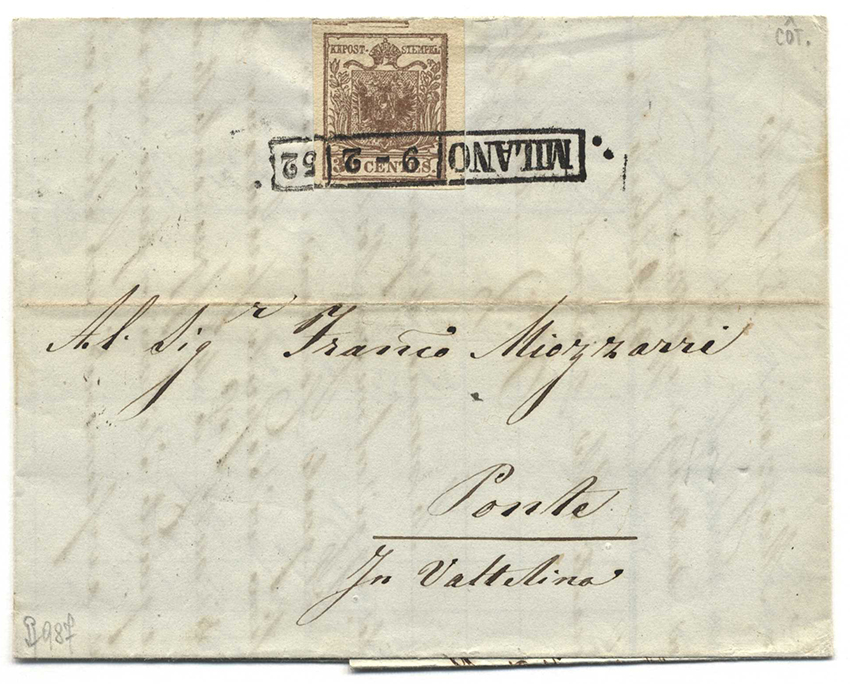 CÔT.
KAPOST-STEMPEL
30 CENTES.
MILANO 9-2 52
Al Sig.r Franco Miozzarri
Ponte
In Valtelina